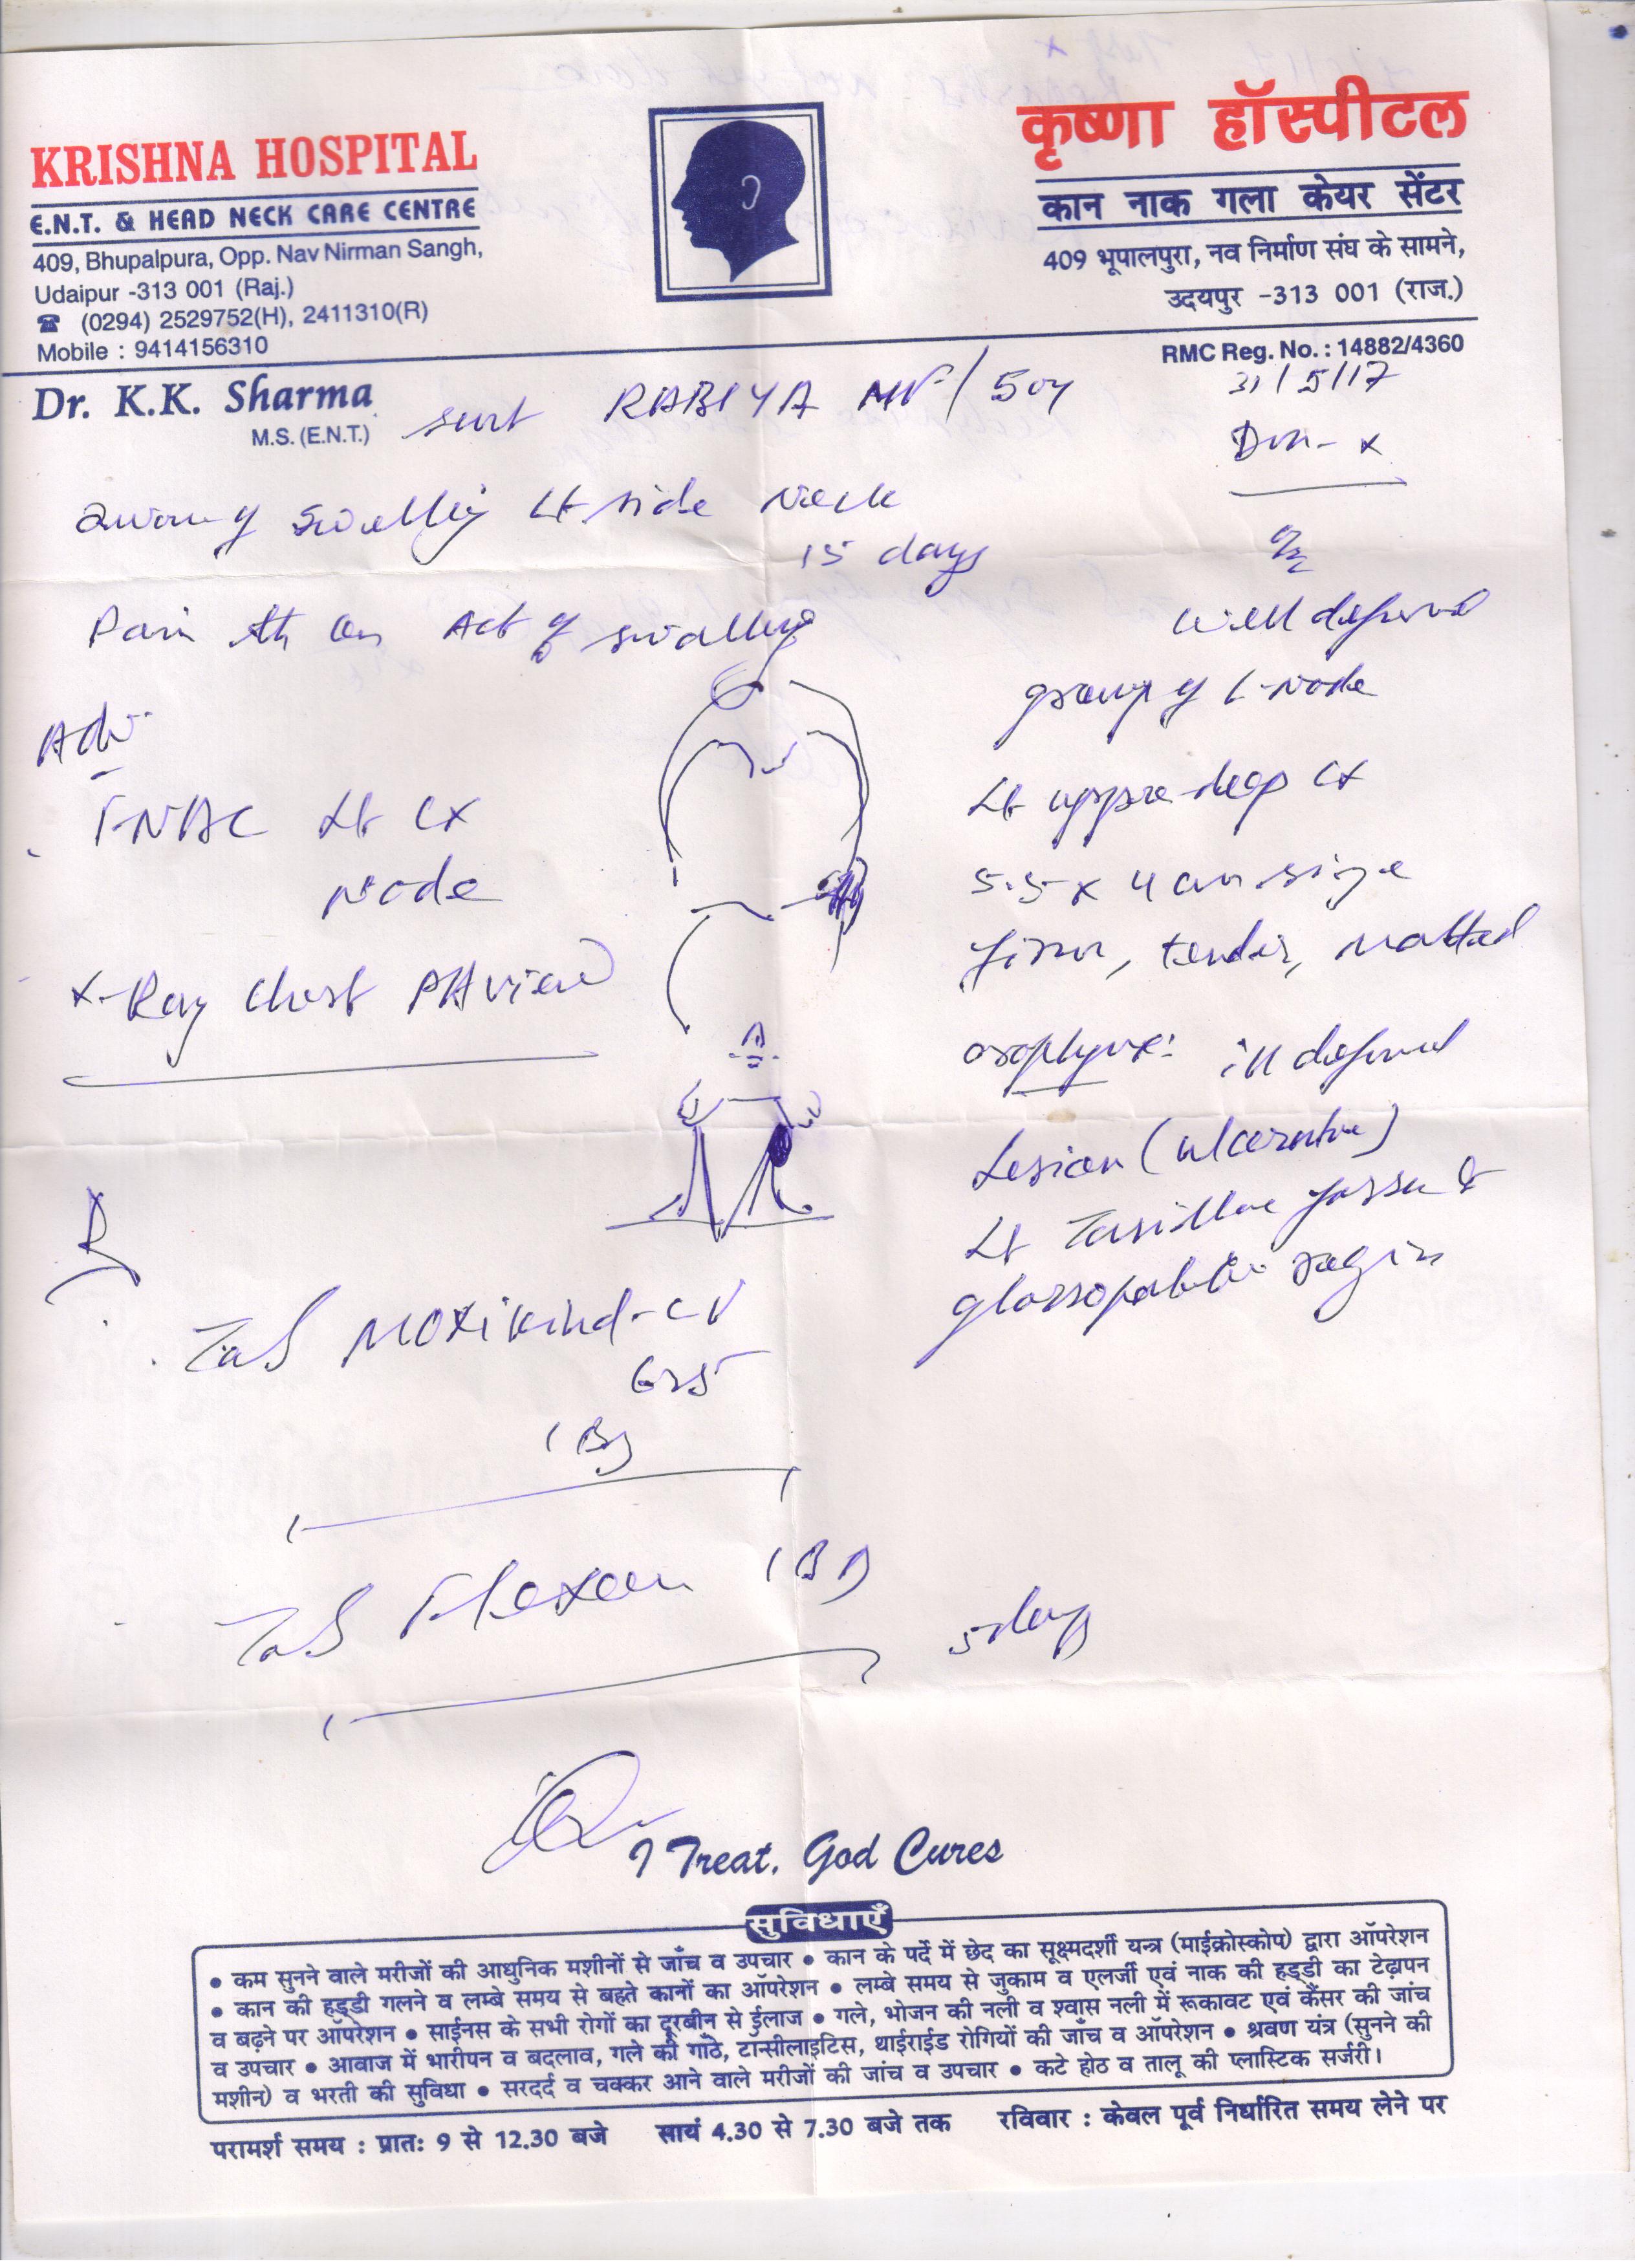 KRISHNA HOSPITAL
E.N.T. & HEAD NECK CARE CENTRE
409, Bhupalpura, Opp. Nav Nirman Sangh,
Udaipur -313 001 (Raj.)
☎ (0294) 2529752(H), 2411310(R)
Mobile : 9414156310
कृष्णा हॉस्पीटल
कान नाक गला केयर सेंटर
409 भूपालपुरा, नव निर्माण संघ के सामने,
उदयपुर -313 001 (राज.)
RMC Reg. No. : 14882/4360
Dr. K.K. Sharma
M.S. (E.N.T.)
Smt RABIYA / 50y
31/5/17
DM- x
swelling Lt side Neck
15 days
Pain on Act of swallig
Adv
FNAC Lt Cx
Node
X-Ray Chest PA view
O/E
well defined
group of L-Node
Lt upper deep Cx
5.5 x 4 cm size
firm, tender, matted
oropharynx: ill defined
Lesion (ulcerative)
Lt Tonsillar fossa &
glossopalatine region
R
Tab MOXIKind-CV
625
1 BD
Tab Flexon 1 BD
5 days
I Treat. God Cures
सुविधाएँ
• कम सुनने वाले मरीजों की आधुनिक मशीनों से जाँच व उपचार • कान के पर्दे में छेद का सूक्ष्मदर्शी यन्त्र (माईक्रोस्कोप) द्वारा ऑपरेशन
• कान की हड्डी गलने व लम्बे समय से बहते कानों का ऑपरेशन • लम्बे समय से जुकाम व एलर्जी एवं नाक की हड्डी का टेढ़ापन
व बढ़ने पर ऑपरेशन • साईनस के सभी रोगों का दूरबीन से ईलाज • गले, भोजन की नली व श्वास नली में रूकावट एवं कैंसर की जांच
व उपचार • आवाज में भारीपन व बदलाव, गले की गांठे, टॉन्सीलाइटिस, थाईराईड रोगियों की जाँच व ऑपरेशन • श्रवण यंत्र (सुनने की
मशीन) व भरती की सुविधा • सरदर्द व चक्कर आने वाले मरीजों की जांच व उपचार • कटे होठ व तालू की प्लास्टिक सर्जरी।
परामर्श समय : प्रातः 9 से 12.30 बजे सायं 4.30 से 7.30 बजे तक रविवार : केवल पूर्व निर्धारित समय लेने पर